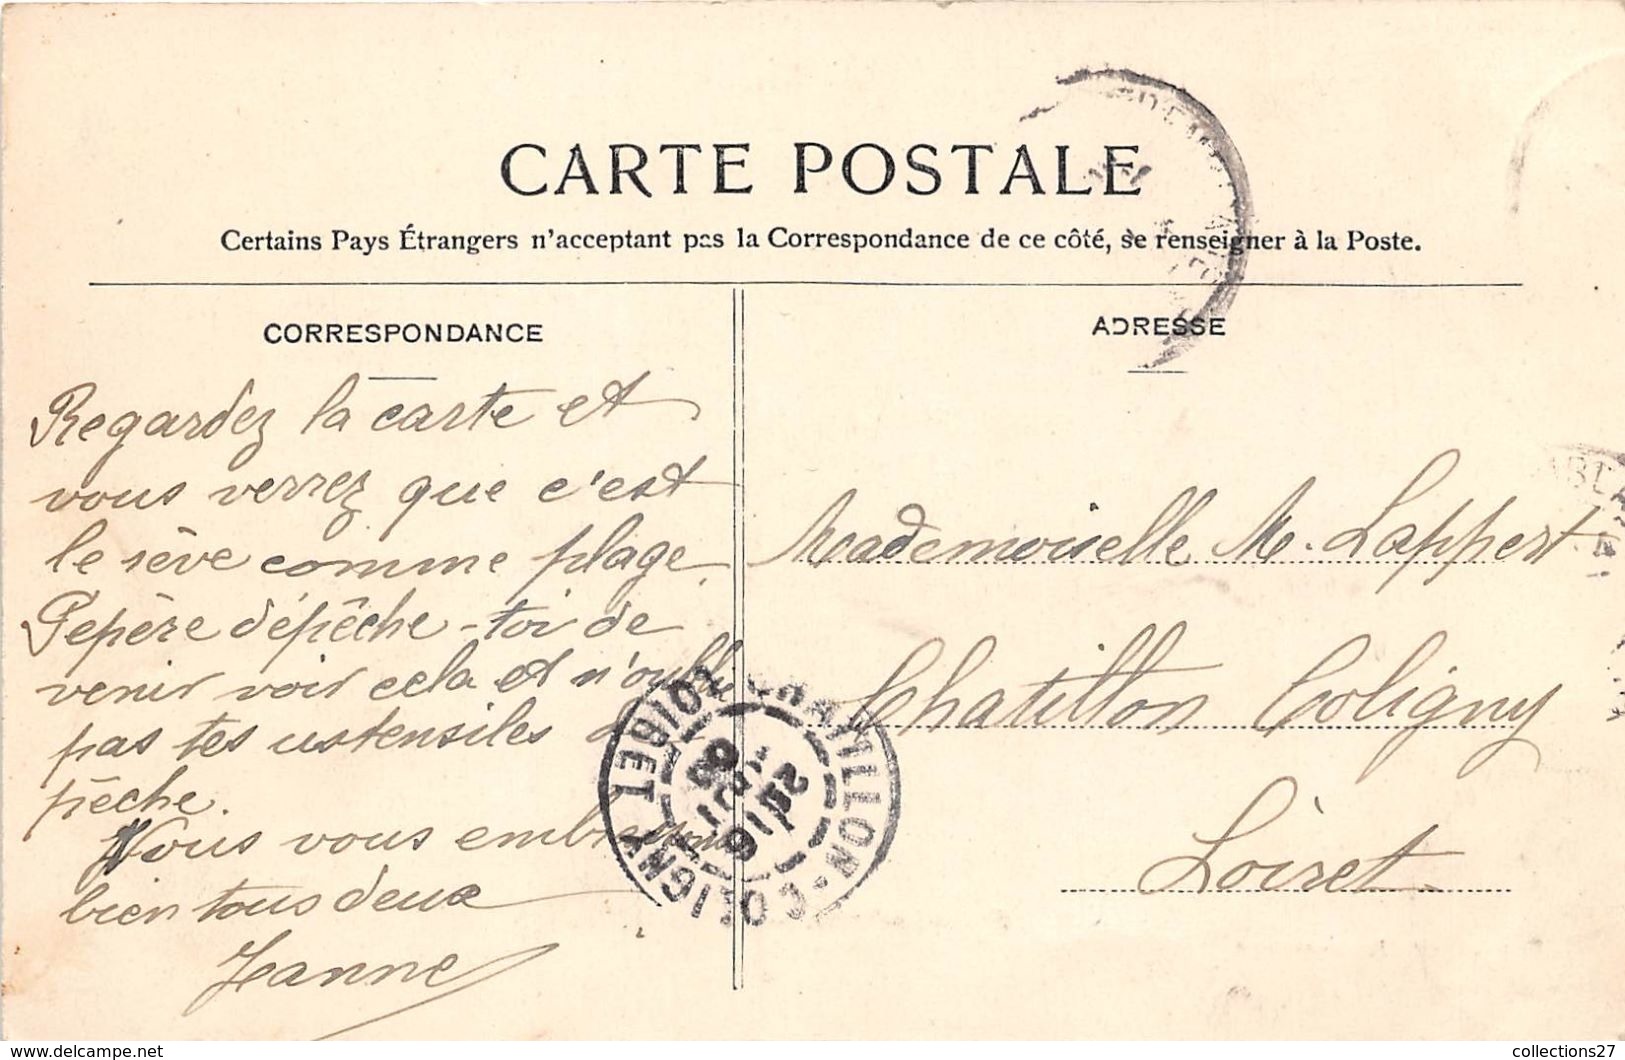 CARTE POSTALE
Certains Pays Étrangers n'acceptant pas la Correspondance de ce côté, se renseigner à la Poste.
CORRESPONDANCE
Regardez la carte et
vous verrez que c'est
le rêve comme plage.
Pépère dépêche-toi de
venir voir cela et n'oublie
pas tes ustensiles
pêche.
Nous vous embrassons
bien tous deux
Jeanne
ADRESSE
Mademoiselle M. Lappert
Chatillon Coligny
Loiret
CHATILLON-COLIGNY LOIRET
collections27